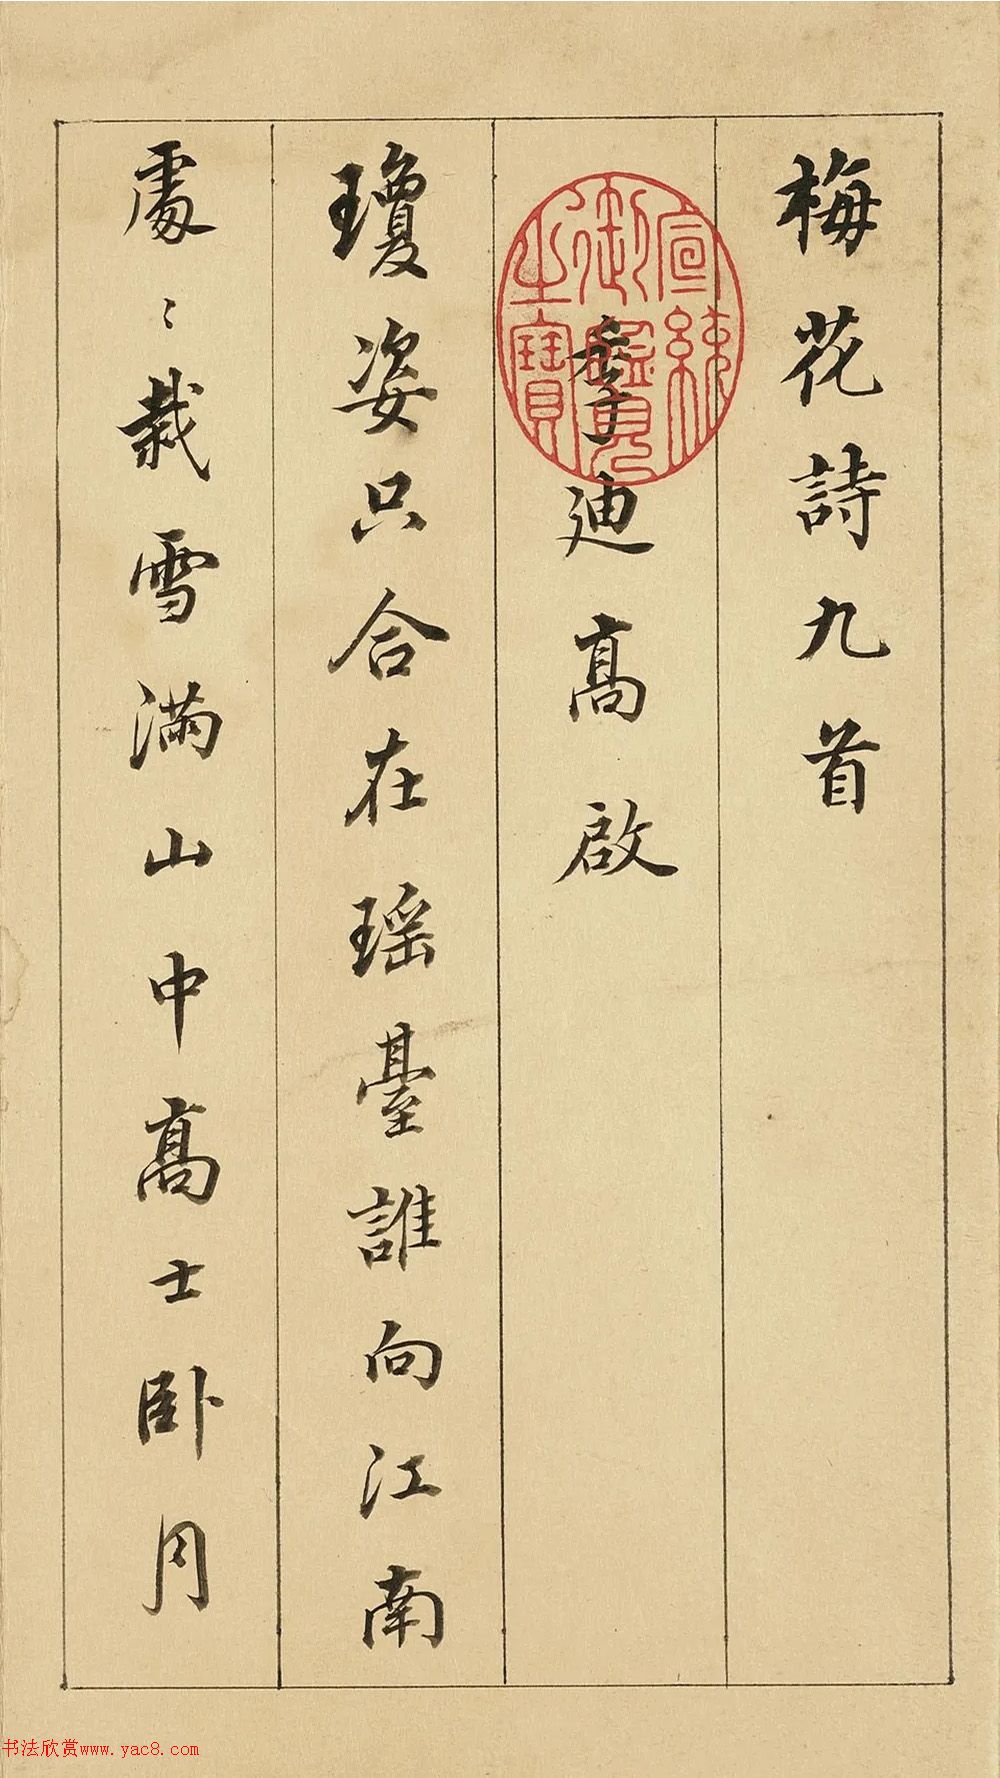 梅花詩九首
季迪高啟
瓊姿只合在瑶臺誰向江南
處〻栽雪満山中高士卧月
宣統御覽之寶
书法欣赏www.yac8.com